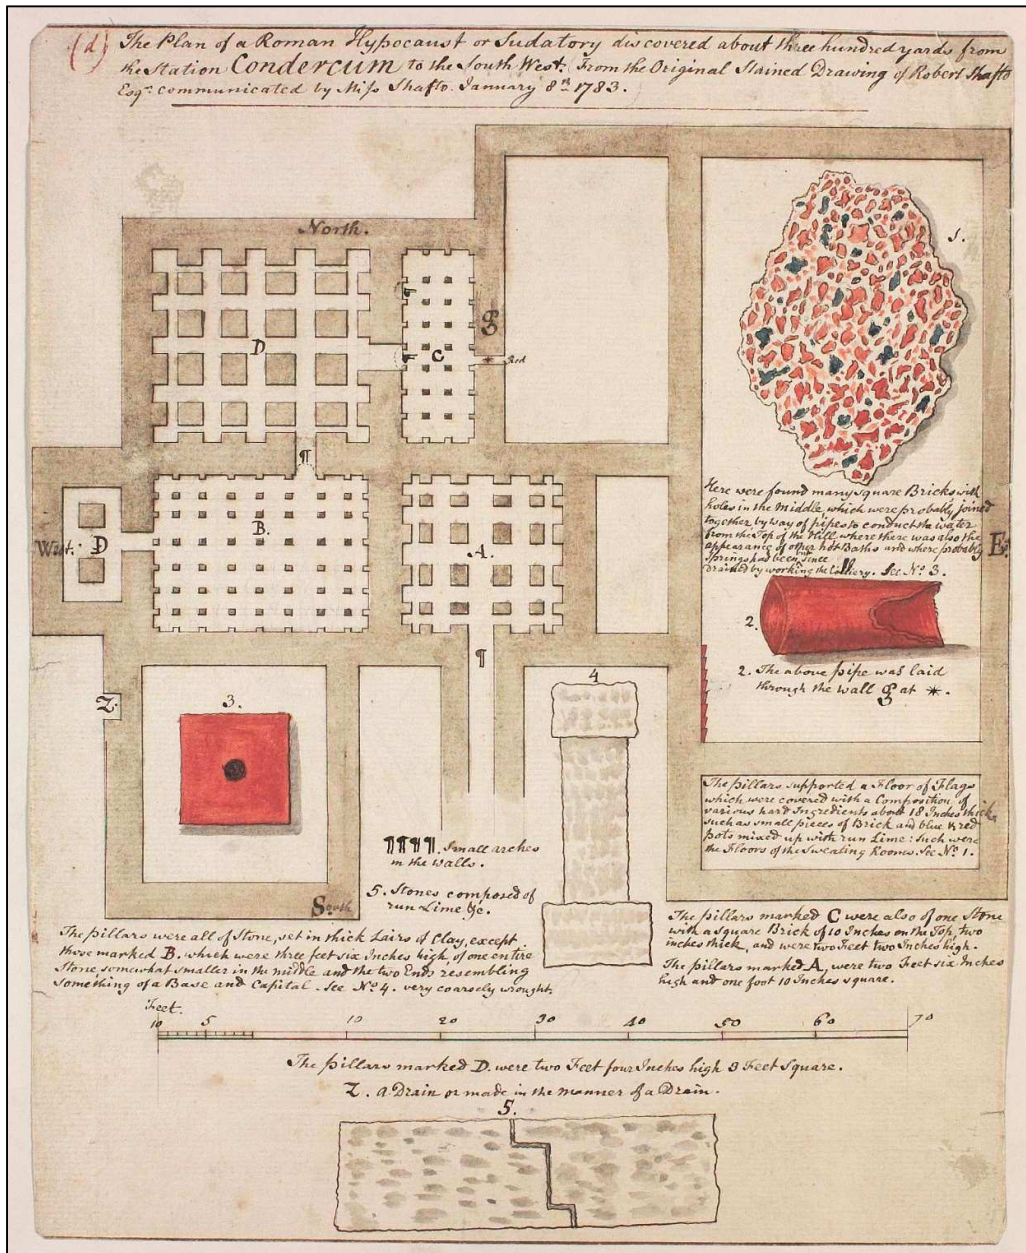 (d) The Plan of a Roman Hypocaust or Sudatory discovered about three hundred yards from
the Station Condercum to the South West. From the Original Stained Drawing of Robert Shafto
Esqr. communicated by Miss Shafto. January 8th 1783.
North.
1.
D
C
g
Red
Here were found many square Bricks with
holes in the Middle which were probably joined
together by way of pipes to conduct the water
from the Top of the Hill, where there was also the
appearance of other hot Baths and where probably
springs had been but since
drained by working the Colliery. See No. 3.
¶
West.
D
B.
A.
E.
2.
¶
2. The above pipe was laid
through the wall g at *.
Z.
3.
4
The pillars supported a Floor of Flags
which were covered with a Composition of
various hard Ingredients about 18 Inches thick,
such as small pieces of Brick and blue & red
pots mixed up with run Lime: such were
the Floors of the Sweating Rooms. See No. 1.
¶¶¶¶. Small arches
in the walls.
5. Stones composed of
run Lime &c.
South
The pillars were all of Stone, set in thick Lairs of Clay, except
those marked B. which were three feet six Inches high, of one entire
Stone, somewhat smaller in the middle and the two Ends resembling
something of a Base and Capital. See No. 4. very coarsely wrought.
The pillars marked C were also of one Stone
with a square Brick of 10 Inches on the Top, two
inches thick, and were two Feet two Inches high.
The pillars marked A, were two Feet six Inches
high and one foot 10 Inches square.
Feet.
10 5 10 20 30 40 50 60 70
The pillars marked D. were two Feet four Inches high 3 Feet Square.
Z. a Drain or made in the manner of a Drain.
5.